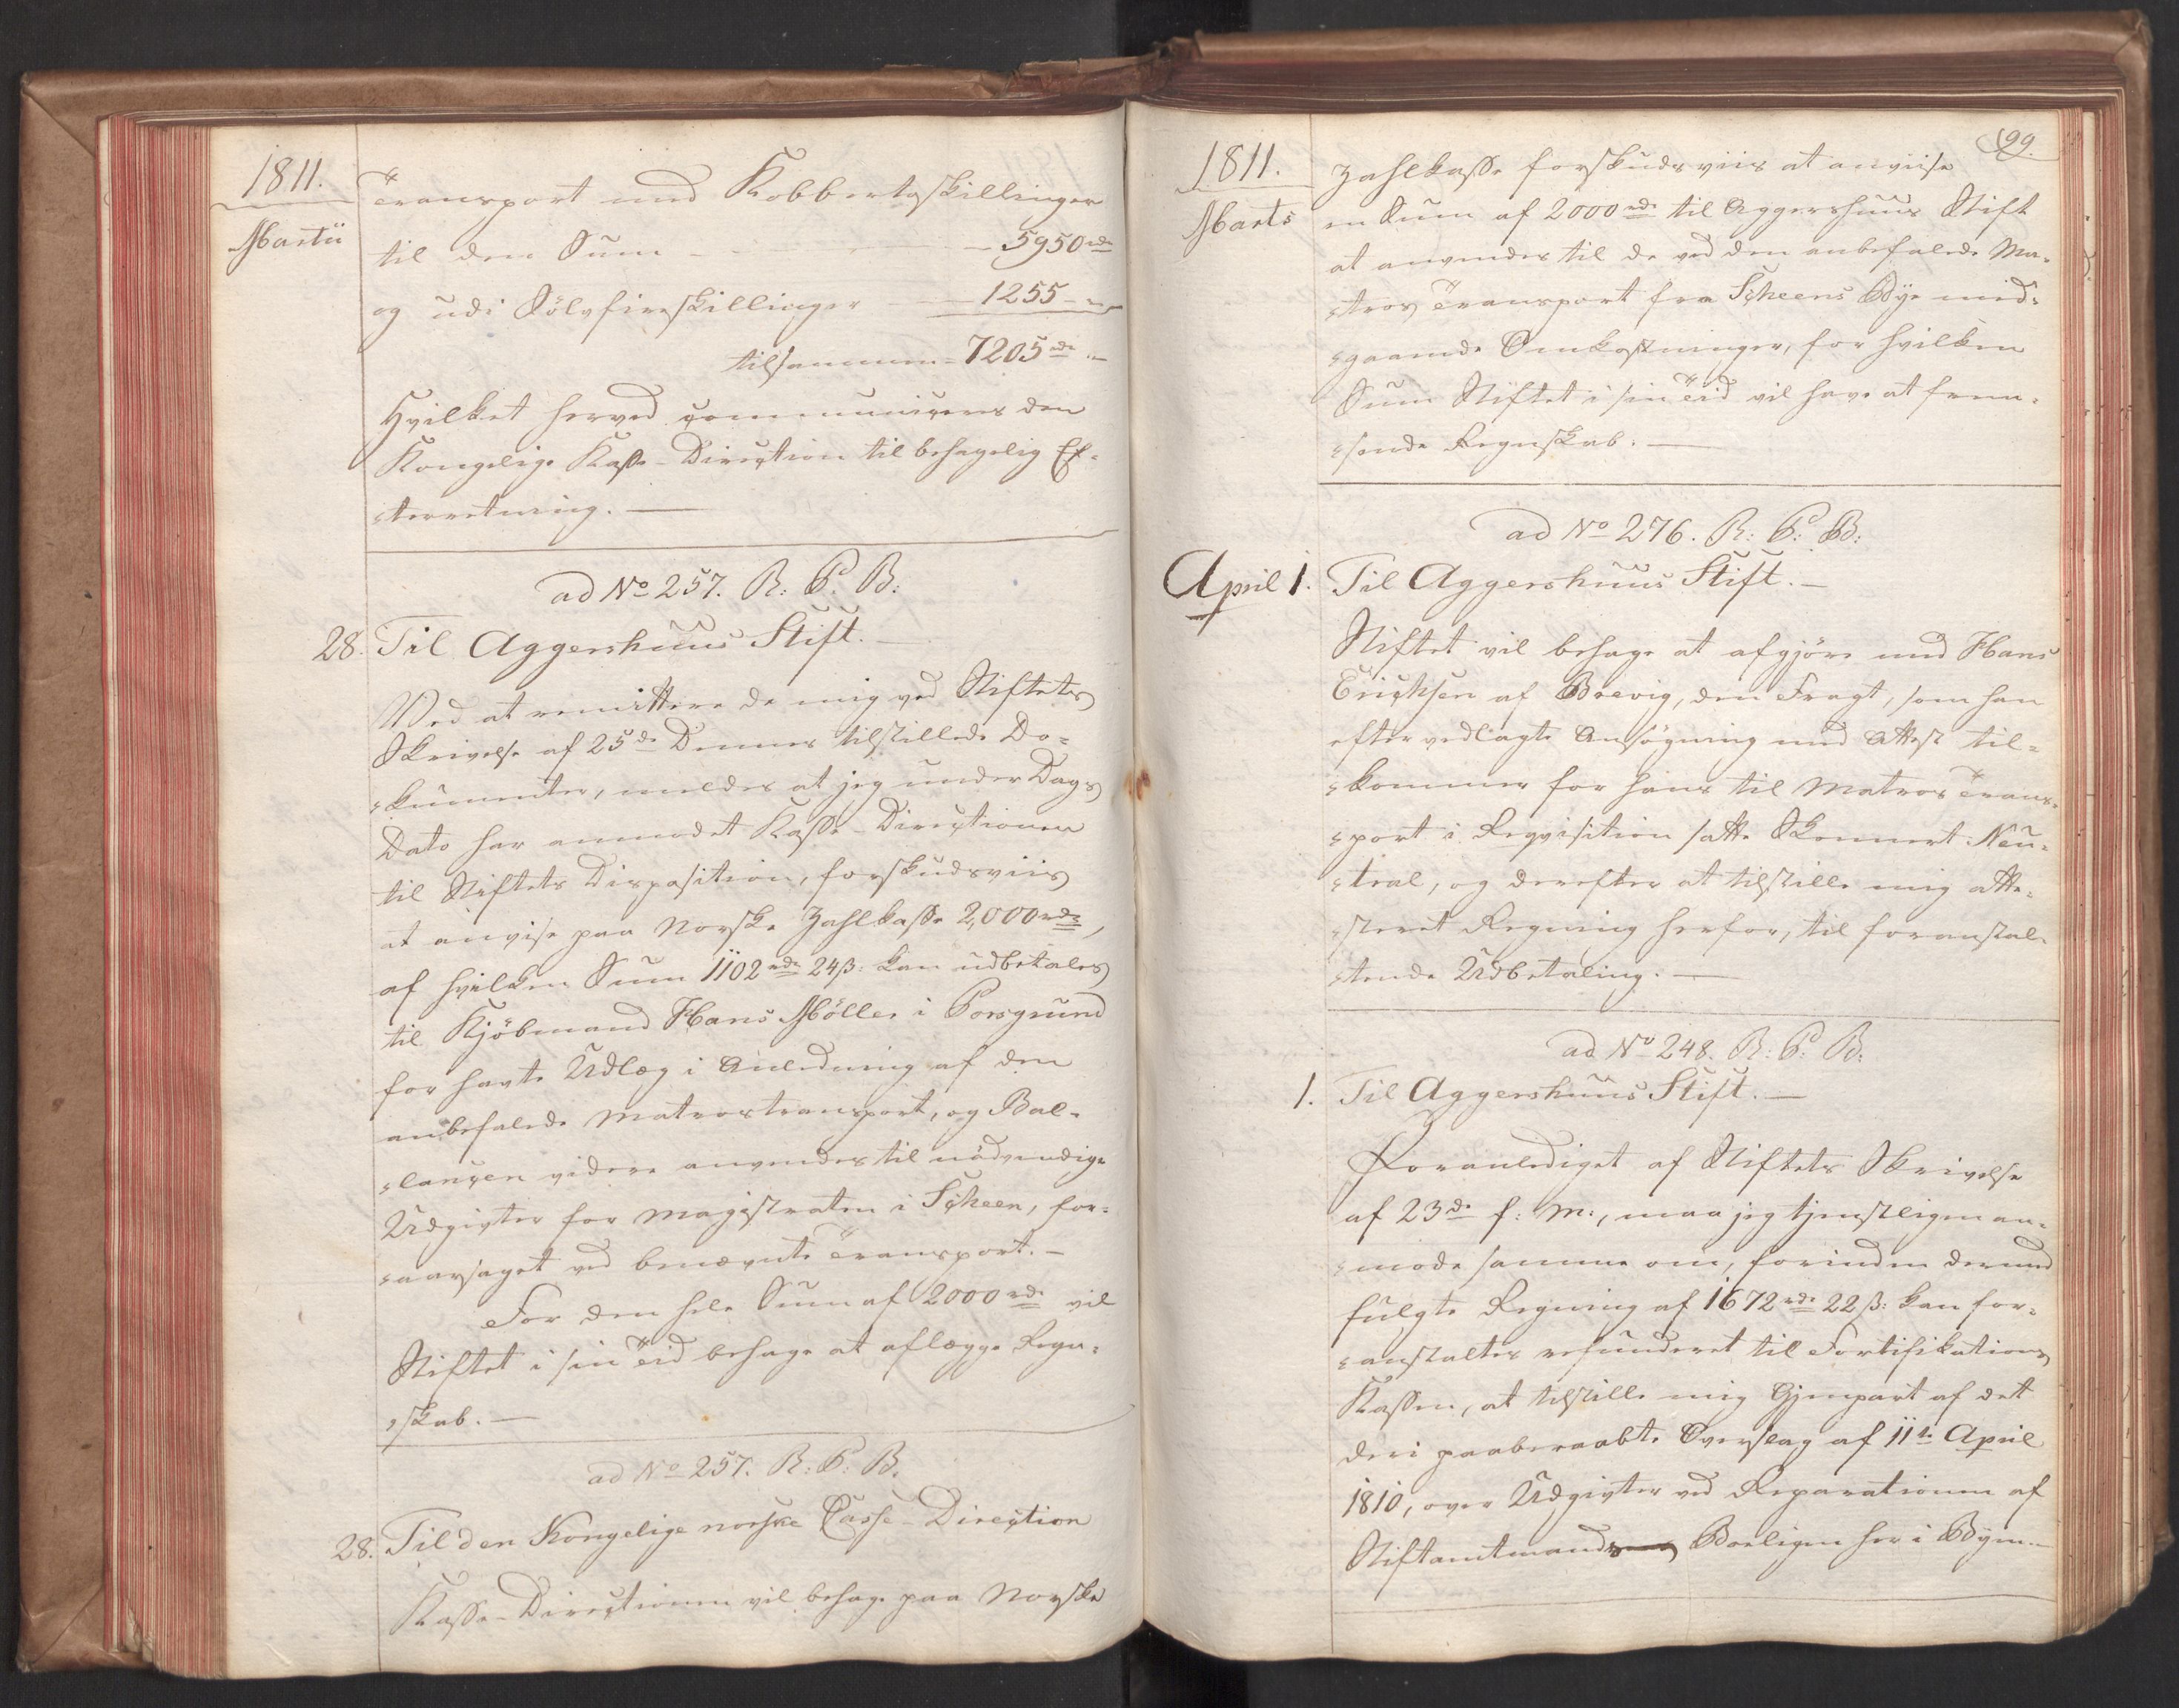 1811.
Martii
Transport med Kobbertoskillinger
til den Sum - - - 5950 rdr
og udi Sölvfireskillinger - 1255 - "
tilsammen = 7205 rdr -
Hvilket herved communiceres den
Kongelige Kasse-Direction til behagelig Ef-
terretning. —
ad No 257. R: C: B:
28. Til Aggershuus Stift. —
Ved at remittere de mig ved Stiftets
Skrivelse af 25de Dennes tilstillede Do-
kumenter, meldes at jeg under Dags
Dato har anmodet Kasse-Directionen
til Stiftets Disposition, forskudsviis
at anvise paa Norske Zahlkasse 2,000 rdr,
af hvilken Sum 1102 rdr 24 ß: kan udbetales
til Kjöbmand Hans Möller i Porsgrund
for havte Udlæg i Anledning af den
anbefalede Matrostransport, og Bal-
lancen videre anvendes til nödvendige
Udgivter for Magistraten i Scheen, for-
aarsaget ved benævnte Transport. —
For den hele Sum af 2000 rdr vil
Stiftet i sin Tid behage at aflægge Regn-
skab. —
ad No 257. R: C: B.
28. Til den Kongelige norske Casse-Direction
Kasse-Directionen vil behage paa Norske
99.
1811.
Marts
Zahlkasse forskudsviis at anviise
en Sum af 2000 rdr til Aggershuus Stift
at anvendes til de ved den anbefalede Ma-
tros Transport fra Scheens Bye med-
gaaende Omkostninger, for hvilken
Sum Stiftet i sin Tid vil have at frem-
sende Regnskab. —
ad No 276. R: C: B:
April 1. Til Aggershuus Stift. —
Stiftet vil behage at afgjöre med Hans
Erichsen af Brevig, den Fragt, som han
efter vedlagte Ansögning med Attest til-
kommer for hans til Matros Trans-
port i Reqvisition satte Skonnert Neu-
tral, og derefter at tilstille mig atte-
steret Regning herfor, til foranstal-
tende Udbetaling. —
ad No 248. R: C: B:
1. Til Aggershuus Stift. —
Foranlediget af Stiftets Skrivelse
af 23de f: M:, maa jeg tjenstligen an-
mode samme om, forinden dermed
fulgte Regning af 1672 rdr 22 ß: kan for-
anstaltes refunderet til Fortifikations
Kassen, at tilstille mig Gjenpart af det
deri paaberaabte Overslag af 11te April
1810, over Udgivter ved Reparationen af
Stiftamtmands Boeligen her i Byen. —